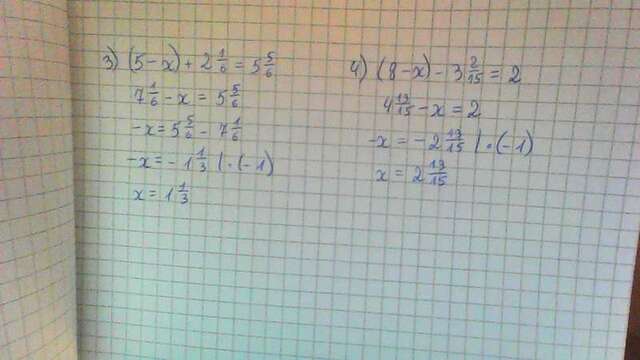 3) (5-x)+2 1/6 = 5 5/6
7 1/6 - x = 5 5/6
-x = 5 5/6 - 7 1/6
-x = -1 1/3 | ·(-1)
x = 1 1/3
4) (8-x) - 3 2/15 = 2
4 13/15 - x = 2
-x = -2 13/15 | ·(-1)
x = 2 13/15